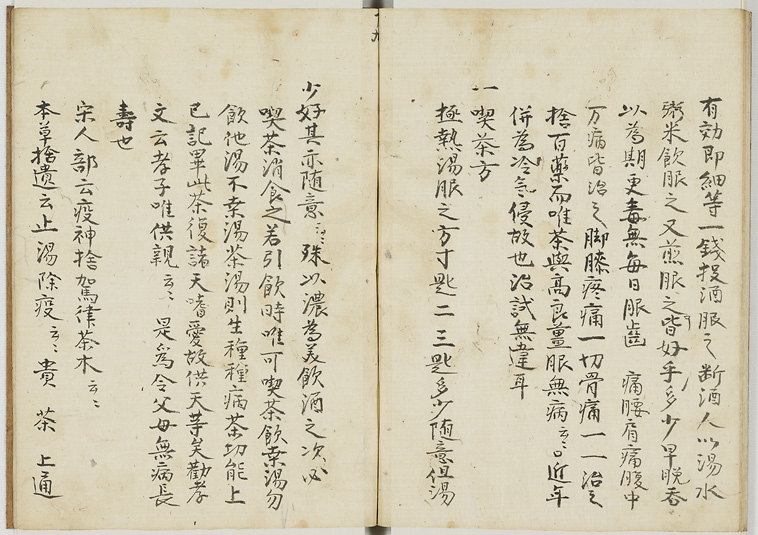 有効即細等一錢投酒服之断酒人以湯水
粥米飲服之又煎服之皆好乎多少早晩呑
以為期更毒無毎日服齒 痛腰肩痛腹中
万病皆治之脚膝疼痛一切骨痛一一治之
捨百薬而唯茶與高良薑服無病云云近年
併為冷氣侵故也治試無違耳
一喫茶方
極熱湯服之方寸匙二三匙多少随意但湯
少好其亦随意云云殊以濃為美飲酒之次必
喫茶消食之若引飲時唯可喫茶飲桒湯勿
飲他湯不桒湯茶湯則生種種病茶功能上
已記畢此茶復諸天嗜愛故供天等矣勸孝
文云孝子唯供親云云是為令父母無病長
壽也
宋人部云疫神捨駕律茶木云云
本草拾遺云止湯除疫云云貴 茶 上通